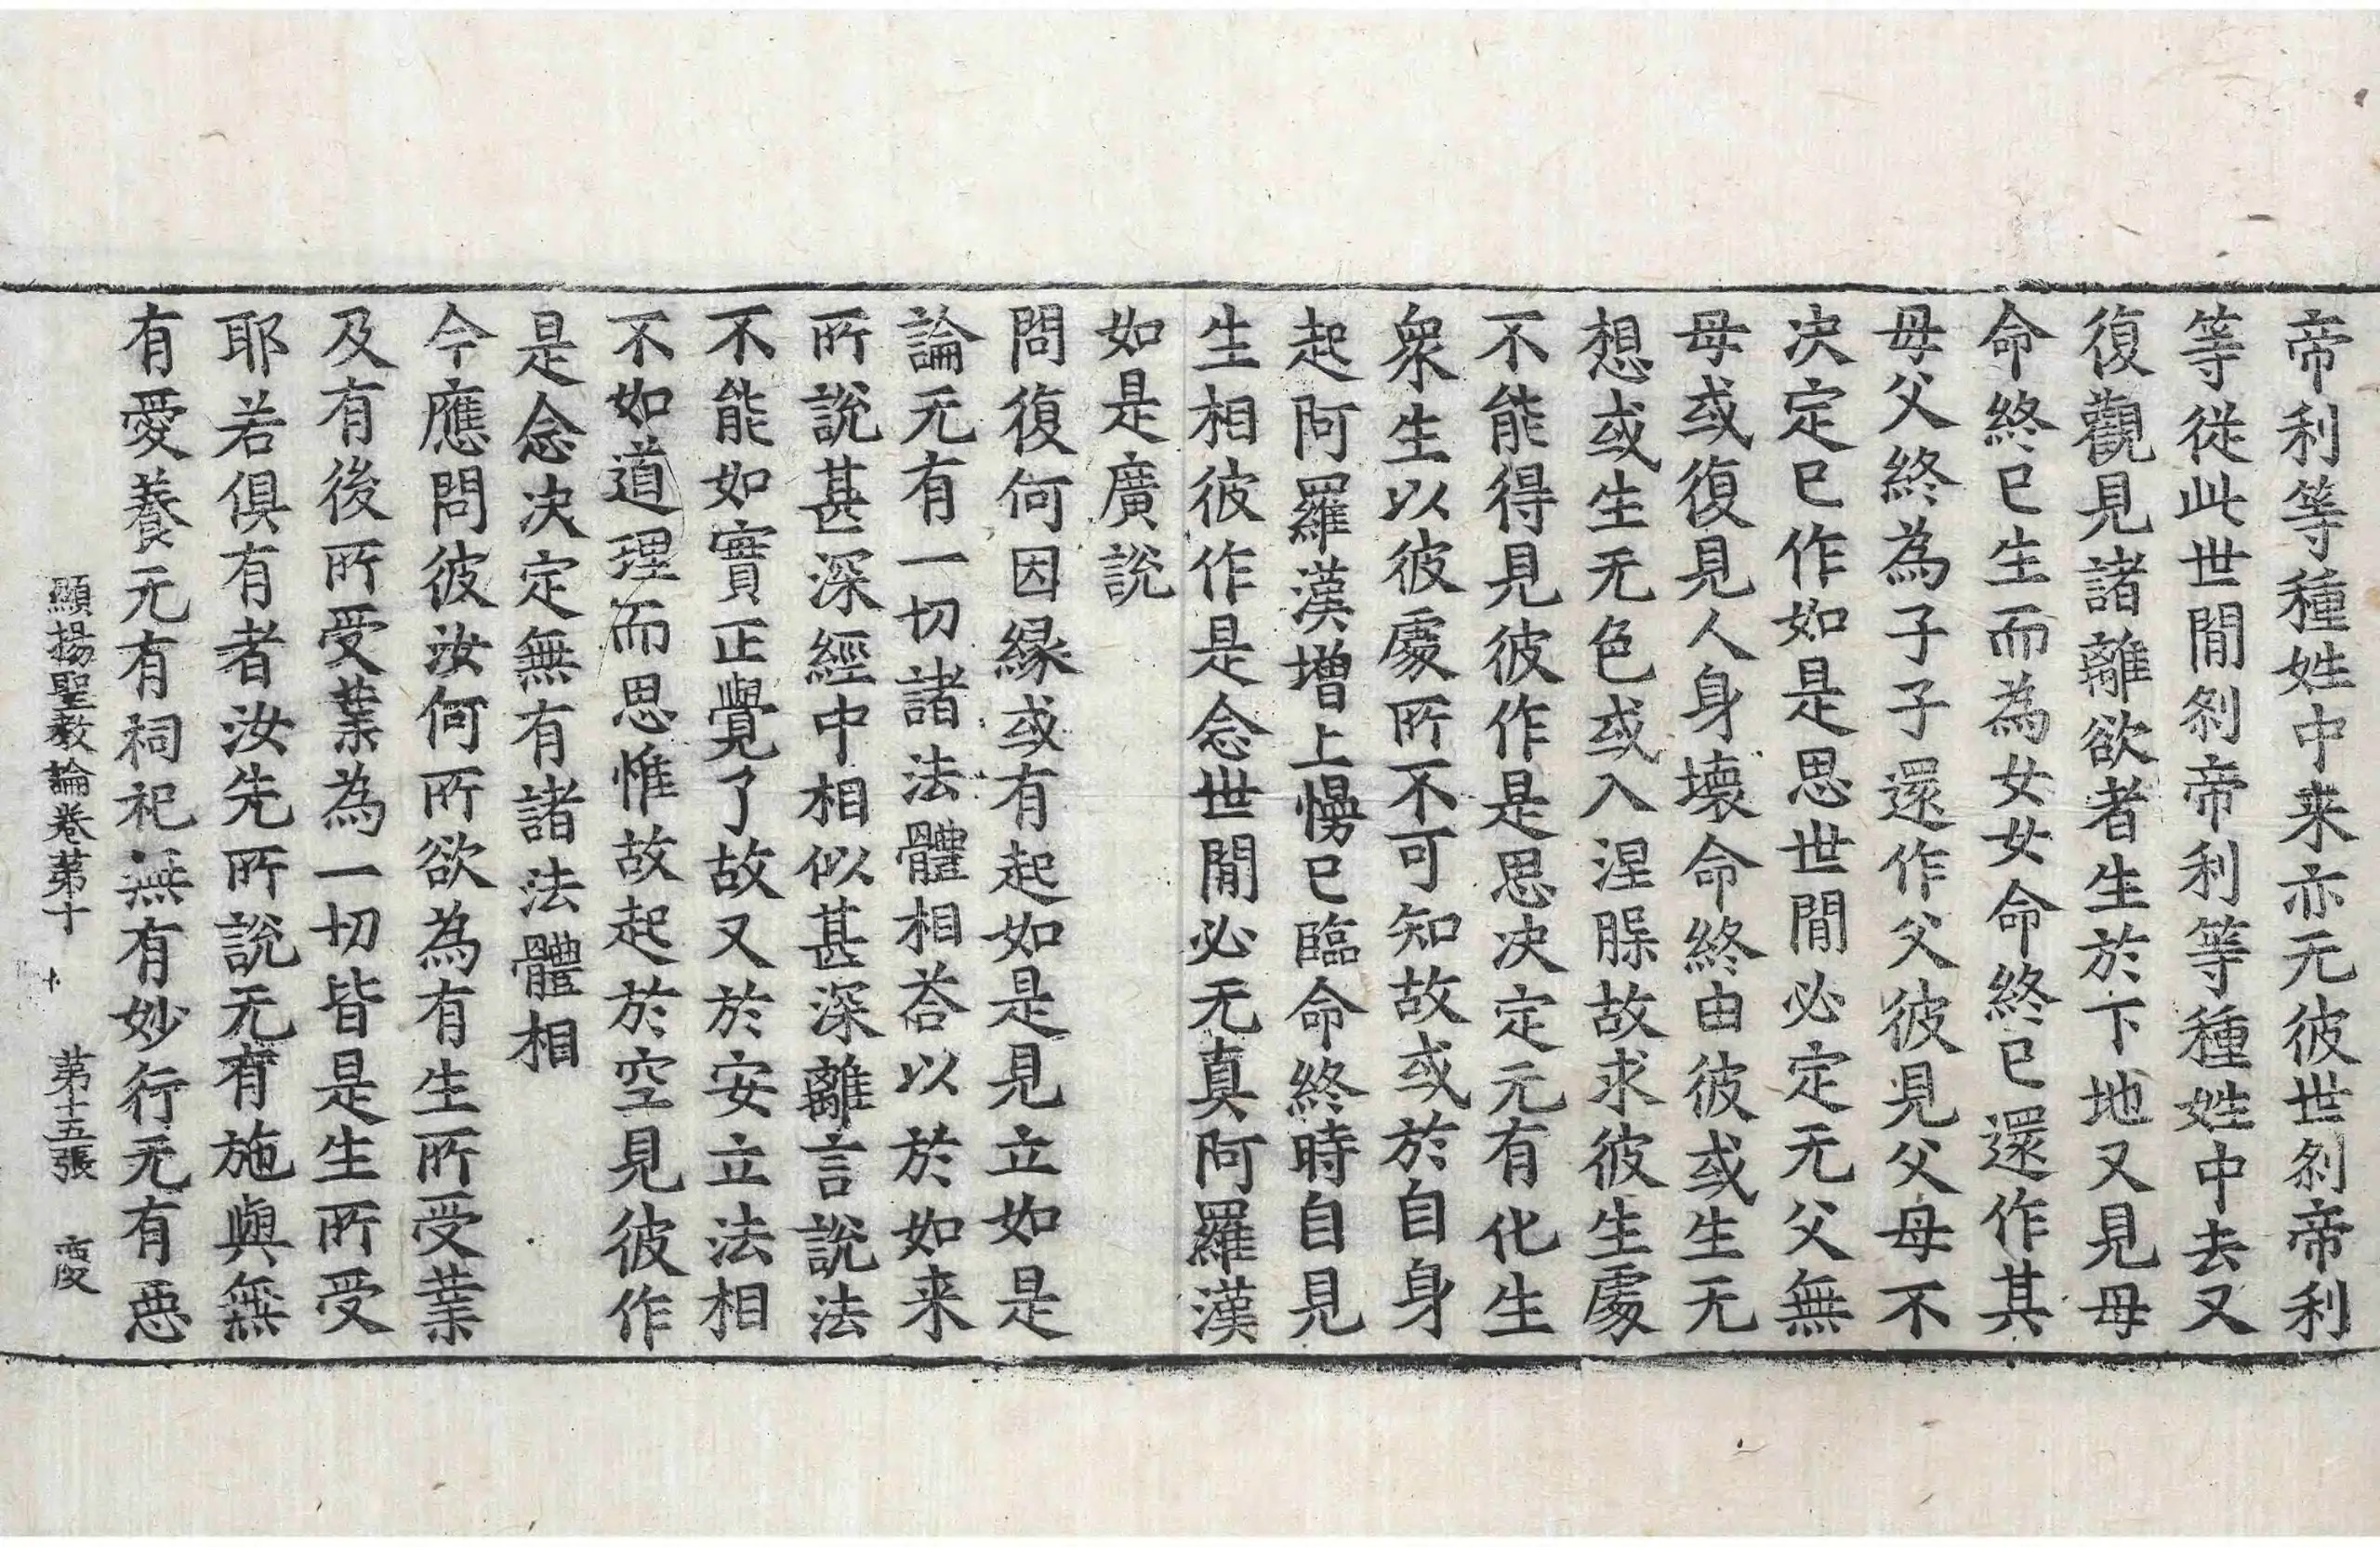 帝利等種姓中来亦无彼世刹帝利
等從此世閒刹帝利等種姓中去又
復觀見諸離欲者生於下地又見母
命終已生而為女女命終已還作其
母父終為子子還作父彼見父母不
决定已作如是思世閒必定无父無
母或復見人身壞命終由彼或生无
想或生无色或入涅槃故求彼生處
不能得見彼作是思决定无有化生
衆生以彼處所不可知故或於自身
起阿羅漢增上慢已臨命終時自見
生相彼作是念世閒必无真阿羅漢
如是廣説
問復何因緣或有起如是見立如是
論无有一切諸法體相荅以於如来
所説甚深經中相似甚深離言説法
不能如實正覺了故又於安立法相
不如道理而思惟故起於空見彼作
是念决定無有諸法體相
今應問彼汝何所欲為有生所受業
及有後所受業為一切皆是生所受
耶若俱有者汝先所説无有施與無
有愛養无有祠祀無有妙行无有惡
顯揚聖教論卷苐十 苐十五張 慶